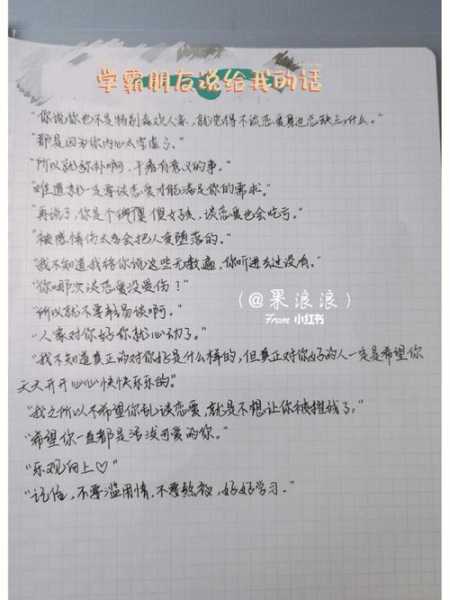 学霸朋友说给我的话
"你说你也不是特别喜欢人家,就觉得不谈恋爱身边总缺点什么。"
"都是因为你内心太空虚了。"
"所以就弥补啊,干有意义的事。"
"难道就一定要谈恋爱才能满足你的需求。"
"再说了,你是个 傻女孩,谈恋爱也会吃亏。"
"被感情伤太多会把人变堕落的。"
"我不知道我给你说这些无数遍,你听进去过没有。"
"你哪次谈恋爱没受伤!"
"所以就不要轻易谈啊。"
"人家对你好你就心动了。"
"我不知道真正的对你好是什么样的,但真正对你好的人一定是希望你
天天开开心心快快乐乐的。"
"我之所以不希望你乱谈恋爱,就是不想让你被摧残了。"
"希望你一直都是活泼可爱的你。"
"乐观向上♡"
"记住,不要滥用情,不要熬夜,好好学习。"
(@果浪浪)
From 小红书